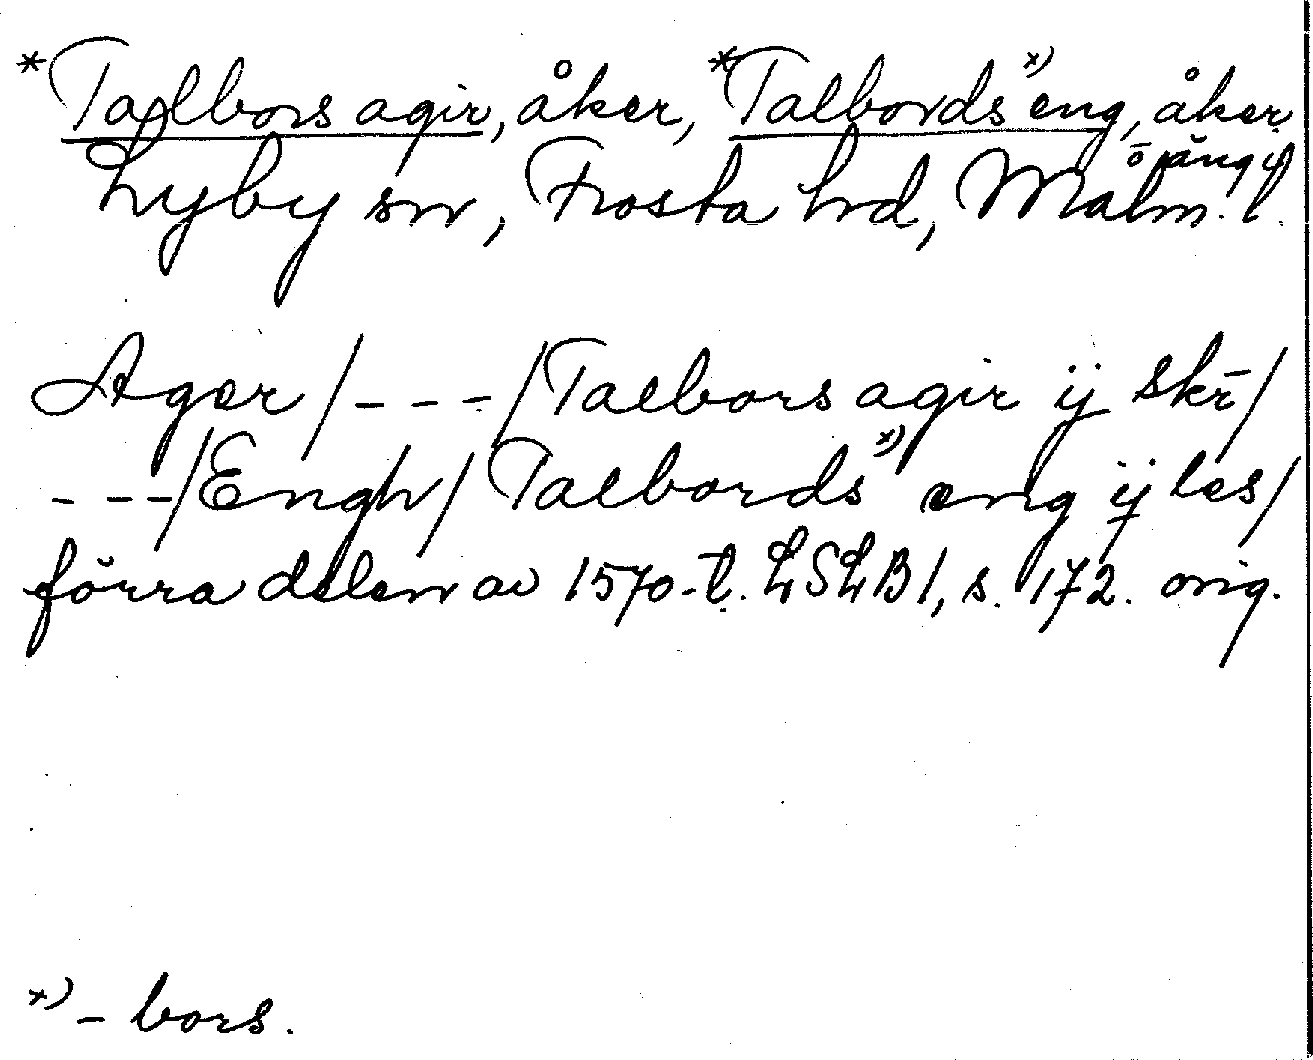 *Taelbors agir, åker, *Taelbords x) eng, åker
o. äng i
Lyby sn, Frosta hd, Malm. l.
Ager / - - - / Taelbors agir ij skr̄ /
- - - / Engh / Taelbords x) eng ij les /
förra delen av 1570-t. LSLB 1, s. 172. orig.
x) - bors.